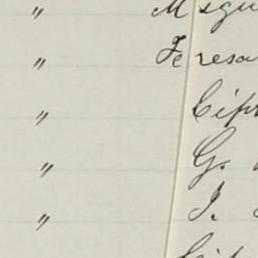 " Migu
" Teresa
" Cipr
" G.
" J.